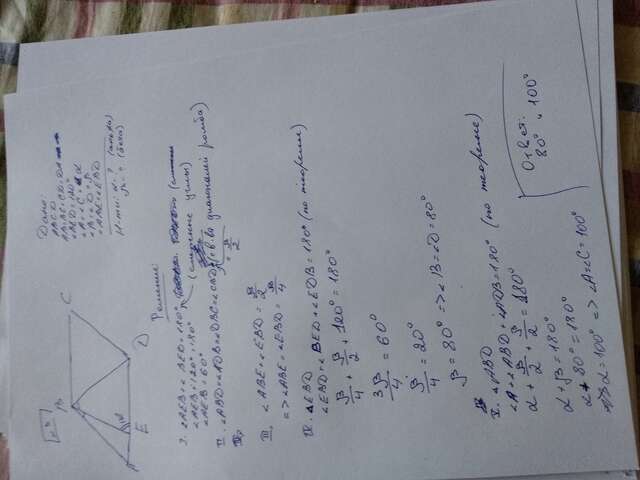 √8
B
C
A
120°
E
D
Дано:
ABCD
AB=BC=CD=DA
∠BED=120°
∠A=∠C=α
∠B=∠D=β
∠ABE=∠EBD
Н-ти: α-? (альфа)
β-? (бета)
Решение:
I. ∠AEB+∠BED=180°
∠AEB+120°=180° (смежные углы)
∠AEB=60°
II. ∠ABD=∠ADB=∠DBC=∠CBD (св-ва диагоналей ромба)
= β/2
III. ∠ABE+∠EBD = β/2
=> ∠ABE=∠EBD = β/4
IV. ΔEBD
∠EBD+∠BED+∠EDB=180° (по теореме)
β/4 + β/2 + 120° = 180°
3β/4 = 60°
β/4 = 20°
β = 80° => ∠B=∠D=80°
V. ∠ABD
∠A+∠ABD+∠ADB=180° (по теореме)
α + β/2 + β/2 = 180°
α+β=180°
α+80°=180°
=> α=100° => ∠A=∠C=100°
Ответ:
80° и 100°